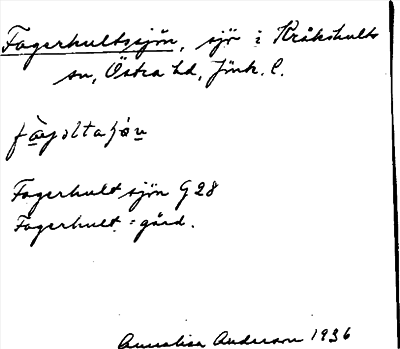 Fagerhultssjön, sjö i Kråkshults
sn, Östra hd, Jönk. l.
Fagerhultsjön G 28
Fagerhult = gård.
Annalisa Anderson 1936